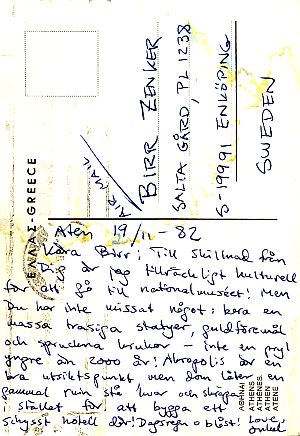 BIRR ZENKER
SALTA GÅRD, PL 1238
S-19991 ENKÖPING
SWEDEN
AIR MAIL
ΕΛΛΑΣ-GREECE
Aten 19/11 - 82
Kära Birr! Till skillnad från
Dig är jag tillräckligt kulturell
för att gå till nationalmuséet! Men
Du har inte missat något: bara en
massa trasiga statyer, guldföremål
och spruckna krukor - inte en pryl
yngre än 2000 år! Akropolis är en
bra utsiktspunkt men dom låter en
gammal ruin stå kvar och skräpa
- i stället för att bygga ett
schysst hotell där! Dagsregn o blåst! Love,
ATHENS
ATHENES
ATHEN
ATENE